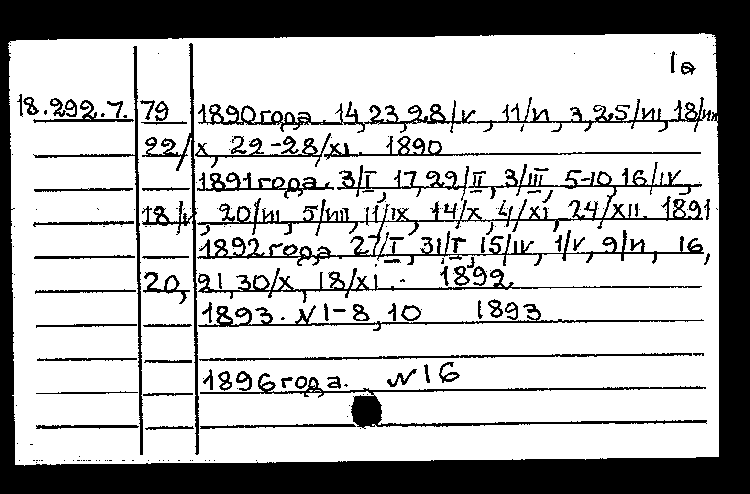 1а
18.292.7. 79 1890 года. 14, 23, 28/V, 11/VI, 3, 25/VII, 18/VIII
22/X, 22-28/XI. 1890
1891 года. 3/I, 17, 29/II, 3/III, 5-10, 16/IV,
18/V, 20/VII, 5/VIII, 11/IX, 14/X, 4/XI, 24/XII. 1891
1892 года. 27/I, 31/I, 15/IV, 1/V, 9/VI, 16,
20, 21, 30/X, 18/XI. 1892
1893. N1-8, 10 1893
1896 года. N16